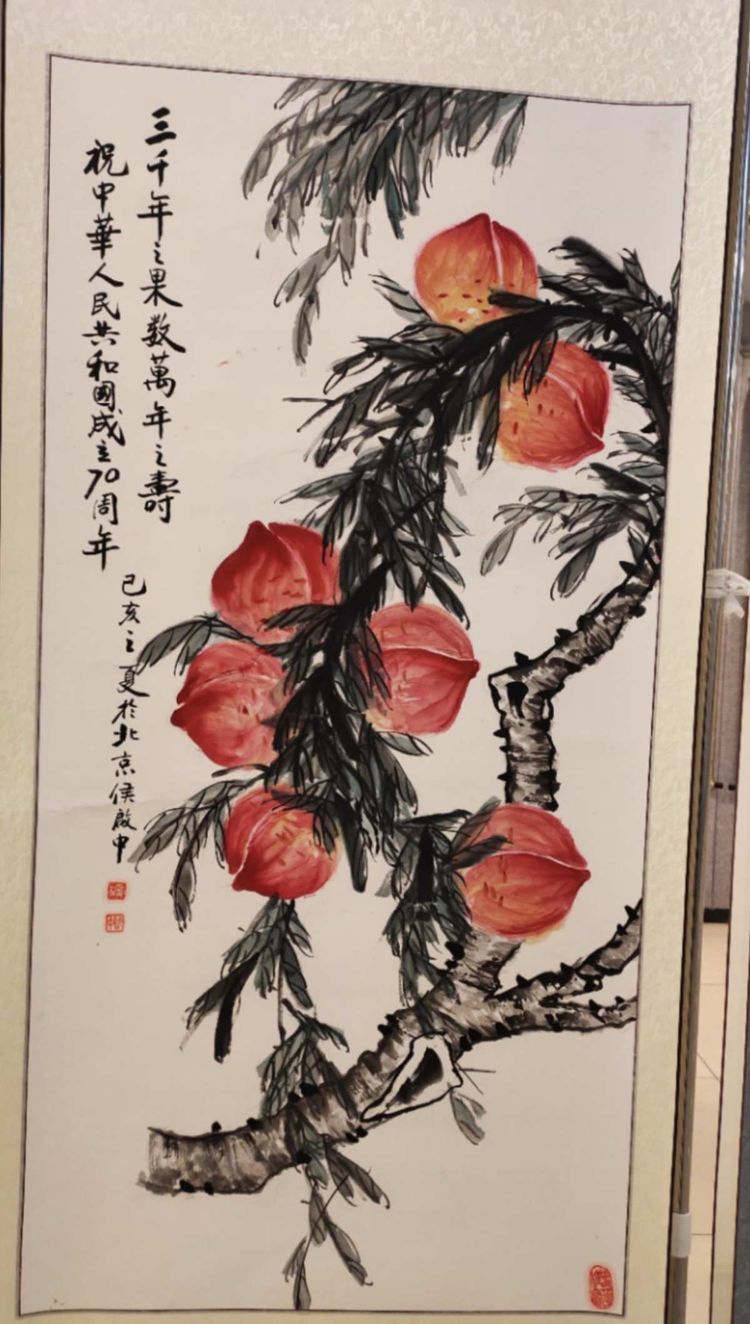 三千年之果数萬年之壽
祝中華人民共和國成立70周年
己亥之夏於北京侯啟中